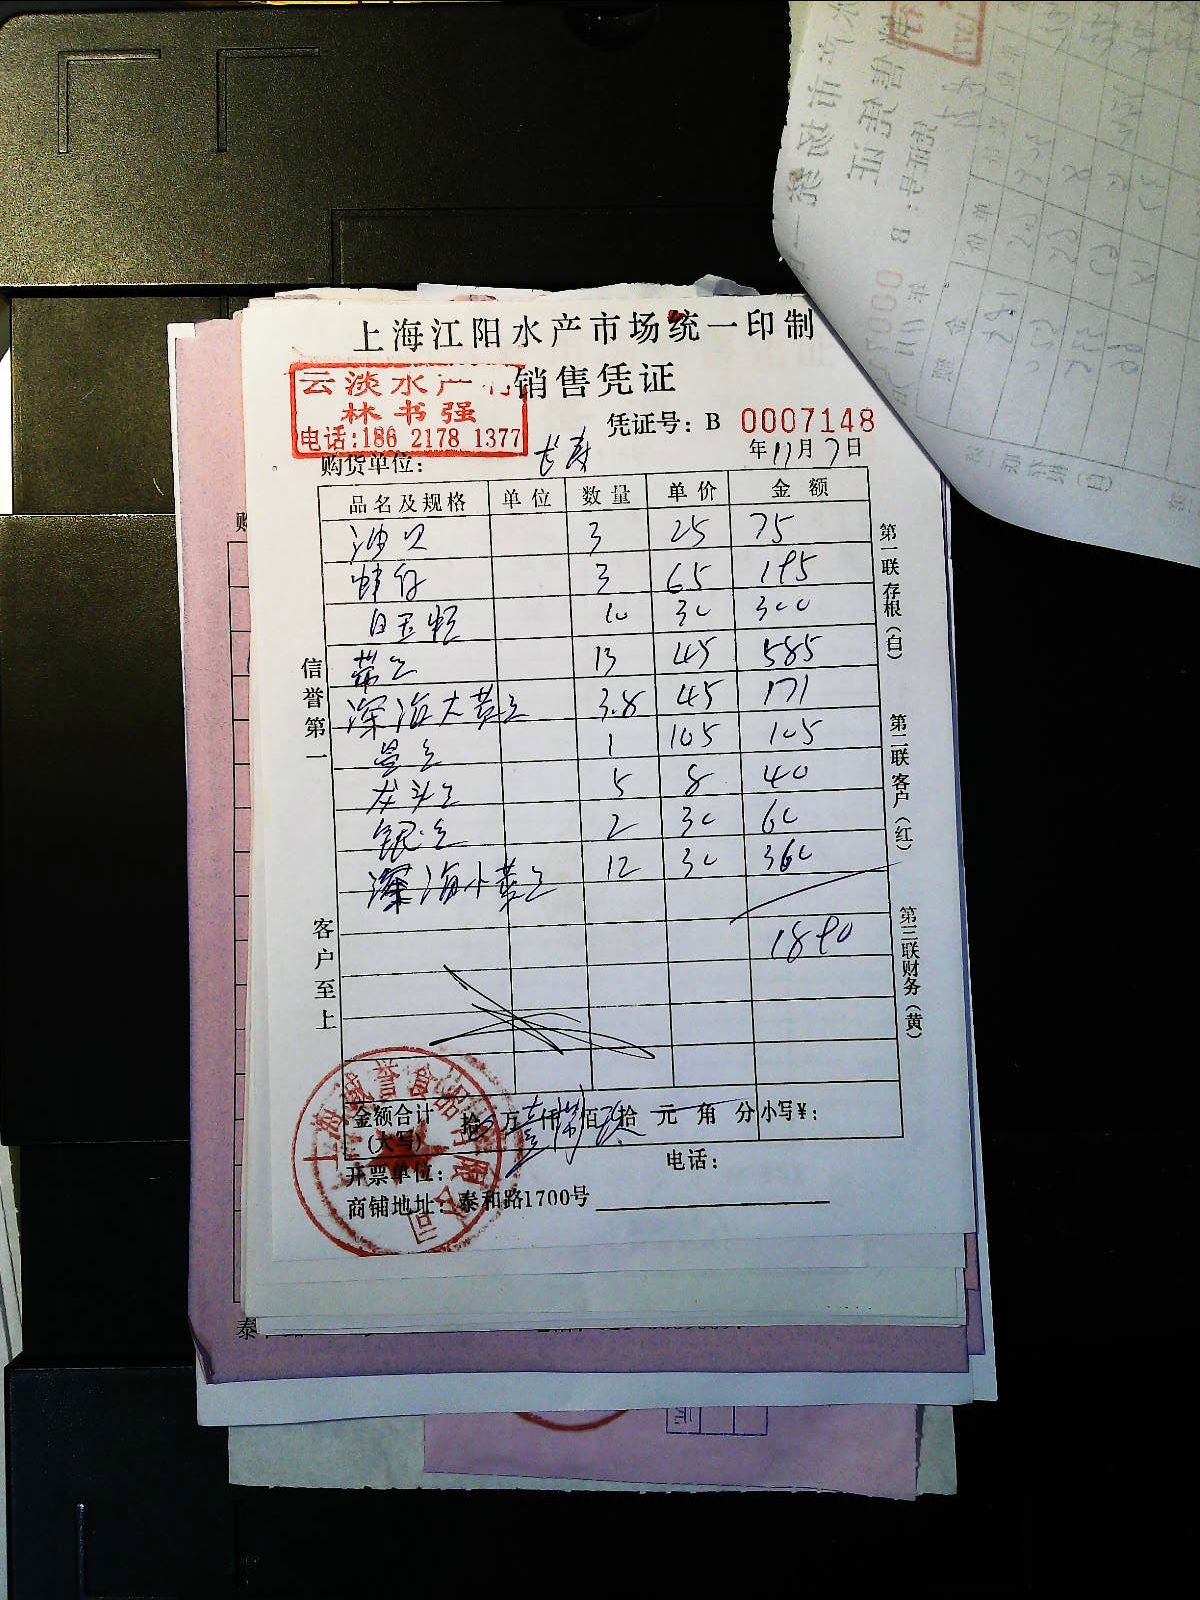 上海江阳水产市场统一印制
销售凭证
云淡水产行
林书强
电话:186 2178 1377
凭证号: B 0007148
购货单位: 长寿
年11月7日
品名及规格 单位 数量 单价 金额
油贝 3 25 75
蛏仔 3 65 195
白玉蛏 10 30 300
带鱼 13 45 585
深海大黄鱼 3.8 45 171
昌鱼 1 105 105
龙头鱼 5 8 40
银鱼 2 30 60
深海小黄鱼 12 30 360
1890
信誉第一
客户至上
第一联存根(白)
第二联客户(红)
第三联财务(黄)
金额合计(大写) 拾 万 仟 佰 拾 元 角 分 小写¥:
开票单位: 电话:
商铺地址: 泰和路1700号
上海 誉食品有限公司